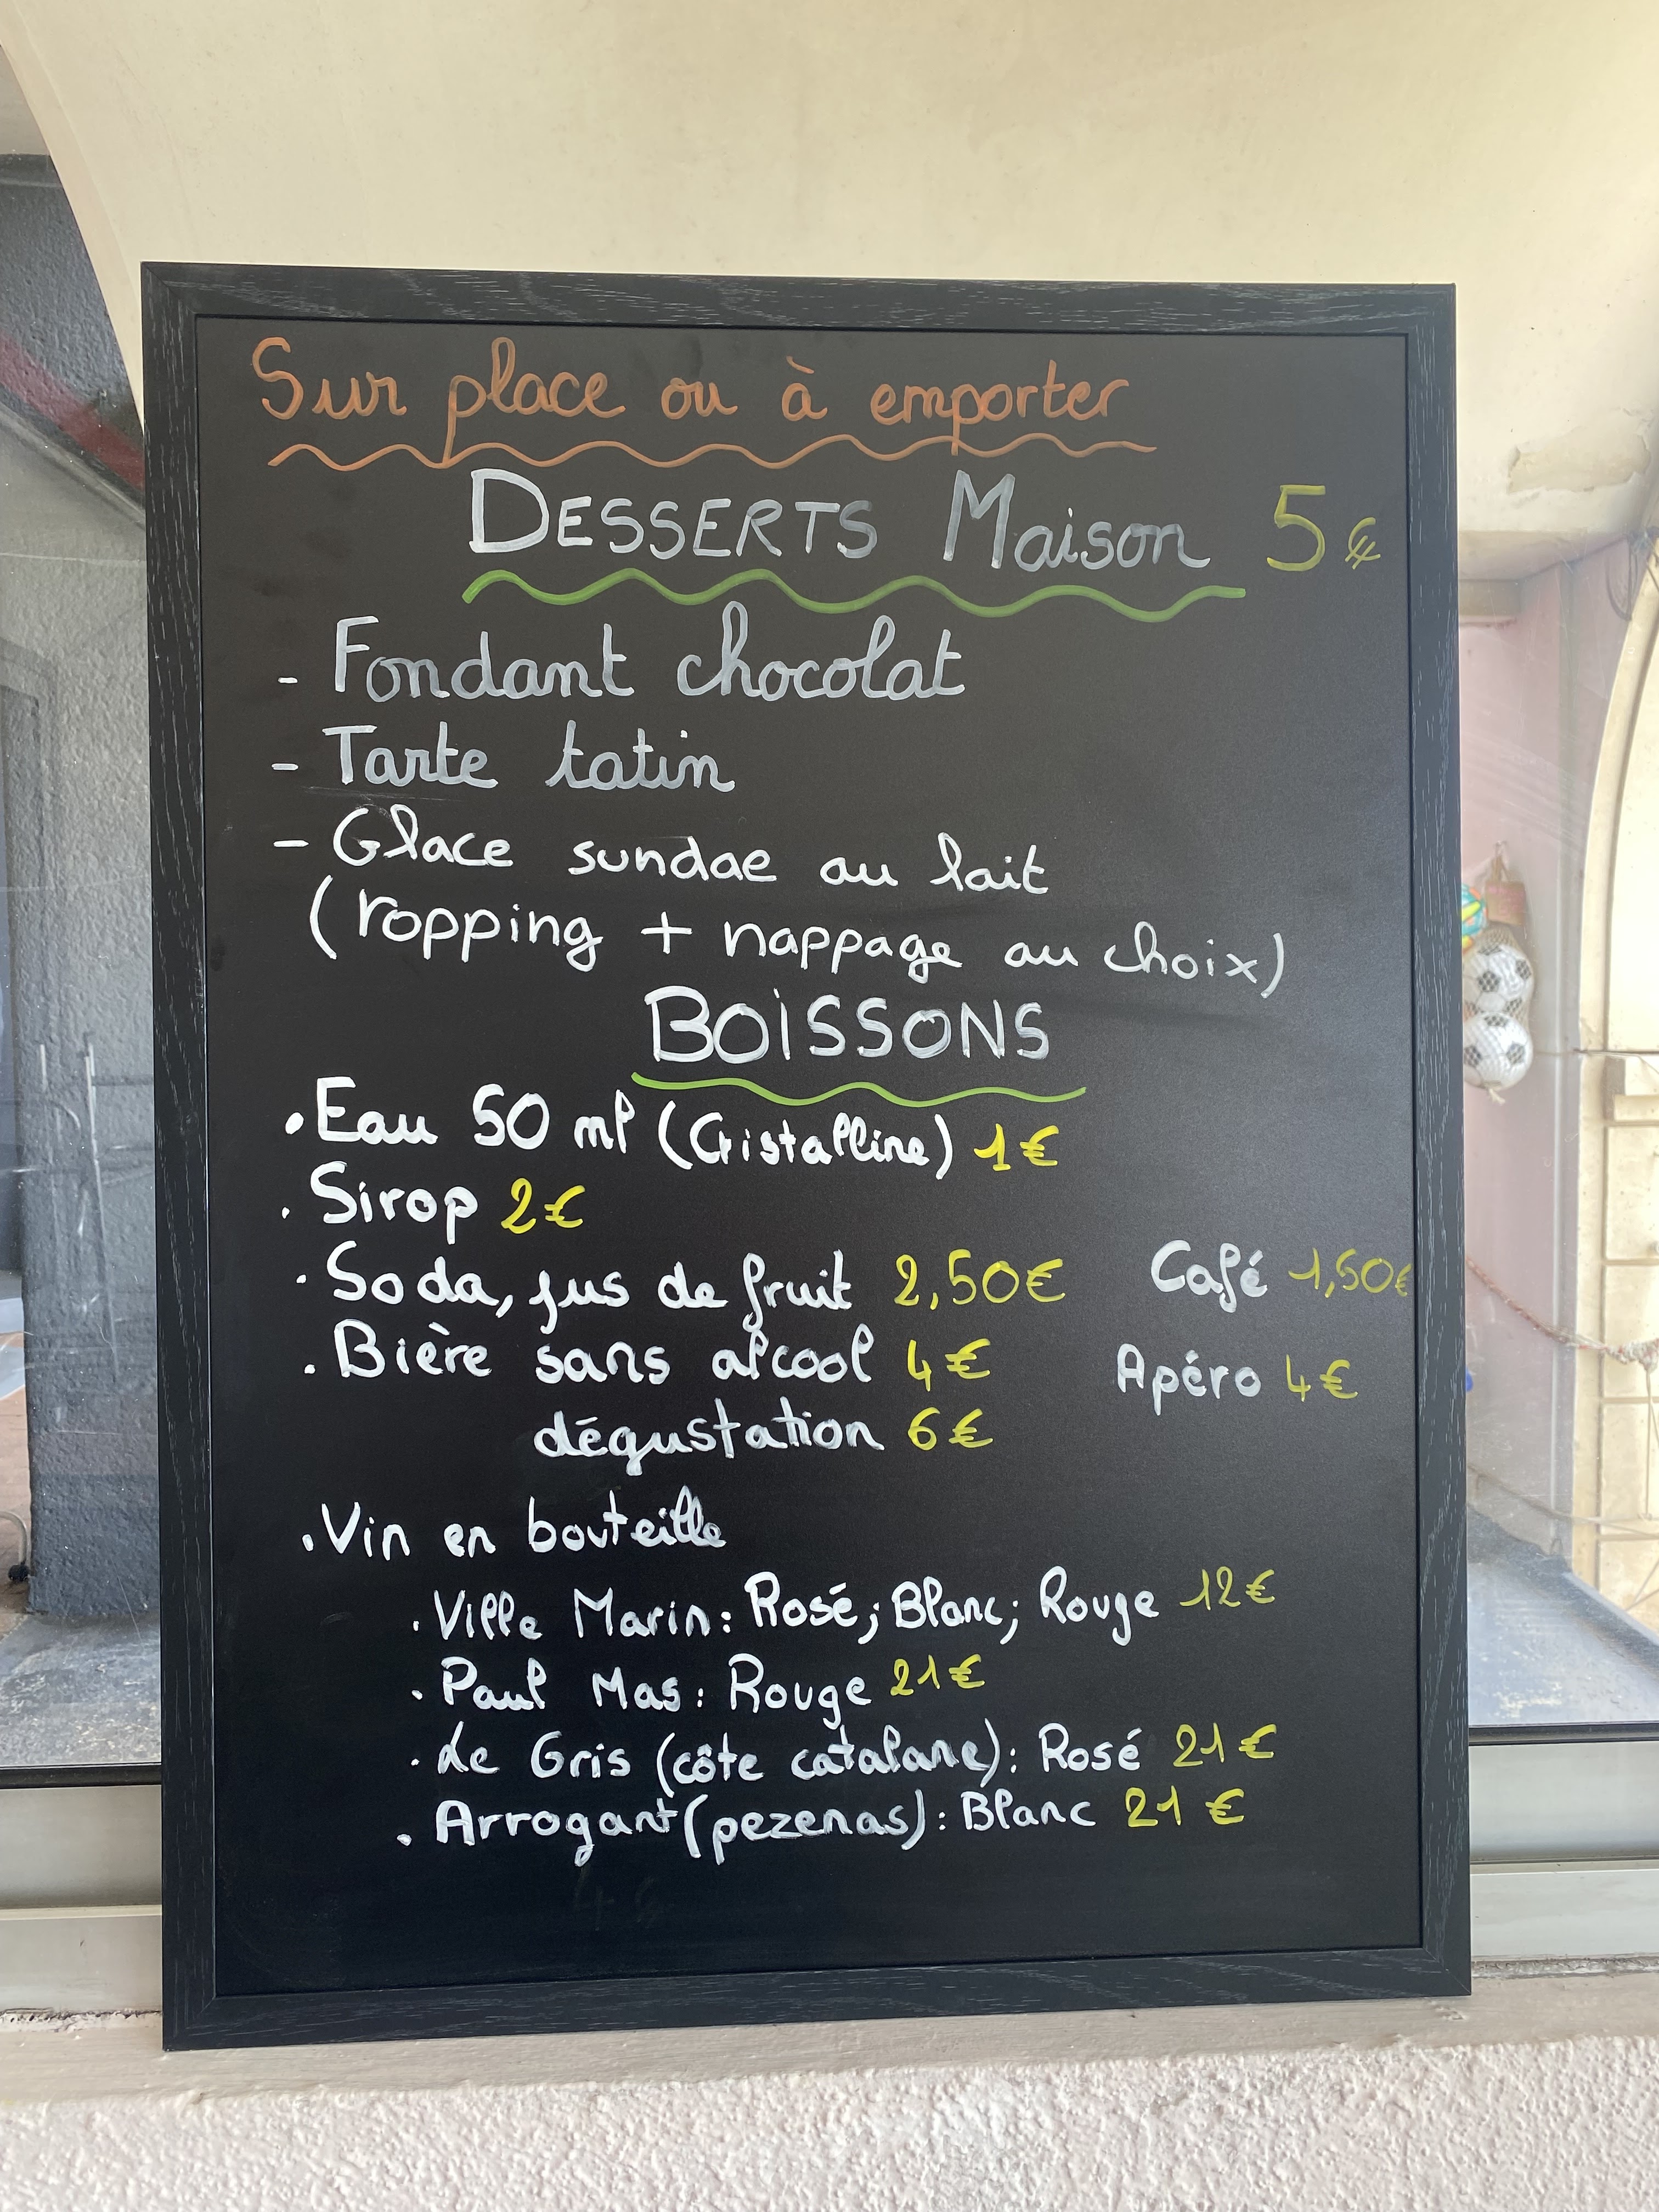 Sur place ou à emporter
DESSERTS Maison 5€
- Fondant chocolat
- Tarte tatin
- Glace sundae au lait
(Topping + nappage au choix)
BOISSONS
. Eau 50 ml (Cristalline) 1€
. Sirop 2€
. Soda, jus de fruit 2,50€ Café 1,50€
. Bière sans alcool 4€ Apéro 4€
dégustation 6€
. Vin en bouteille
. Ville Marin: Rosé; Blanc; Rouge 12€
. Paul Mas: Rouge 21€
. Le Gris (côte catalane): Rosé 21€
. Arrogant (pezenas): Blanc 21€